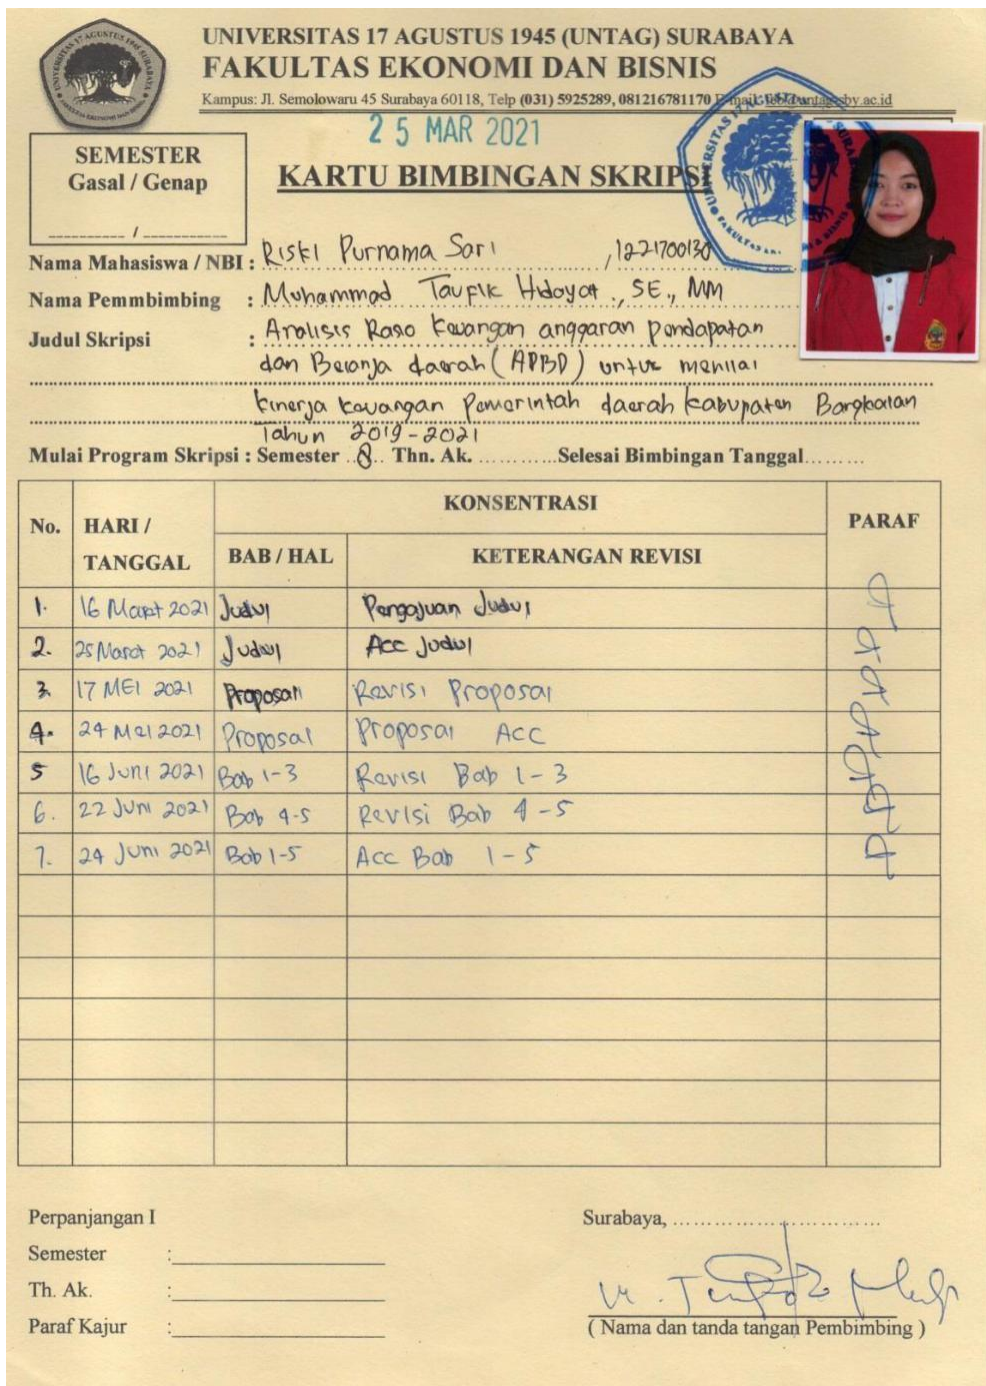 UNIVERSITAS 17 AGUSTUS 1945 (UNTAG) SURABAYA
FAKULTAS EKONOMI DAN BISNIS
Kampus: Jl. Semolowaru 45 Surabaya 60118, Telp (031) 5925289, 081216781170
25 MAR 2021
SEMESTER
Gasal / Genap
/
KARTU BIMBINGAN SKRIPSI
Nama Mahasiswa / NBI : Riski Purnama Sari , 1221700130
Nama Pemmbimbing : Muhammad Taufik Hidayat ., SE., MM
Judul Skripsi : Analisis Raso Keuangan anggaran pendapatan
dan Belanja daerah ( APBD ) untuk menilai
kinerja keuangan Pemerintah daerah Kabupaten Bangkalan
Tahun 2019 - 2021
Mulai Program Skripsi : Semester 8 Thn. Ak. Selesai Bimbingan Tanggal
No. HARI / TANGGAL KONSENTRASI PARAF
BAB / HAL KETERANGAN REVISI
1. 16 Maret 2021 Judul Pengajuan Judul
2. 25 Maret 2021 Judul Acc Judul
3. 17 MEI 2021 Proposal Revisi Proposal
4. 24 Mei 2021 Proposal Proposal Acc
5 16 Juni 2021 Bab 1-3 Revisi Bab 1-3
6. 22 Juni 2021 Bab 4-5 Revisi Bab 4-5
7. 24 Juni 2021 Bab 1-5 Acc Bab 1-5
Perpanjangan I
Semester :
Th. Ak. :
Paraf Kajur :
Surabaya,
( Nama dan tanda tangan Pembimbing )